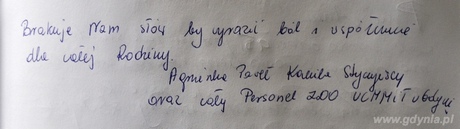 Brakuje Nam słów by wyrazić ból i współczucie
dla całej Rodziny.
Agnieszka Paweł Kamila
oraz cały Personel ZOO UCMMiT w Gdyni
www.gdynia.pl